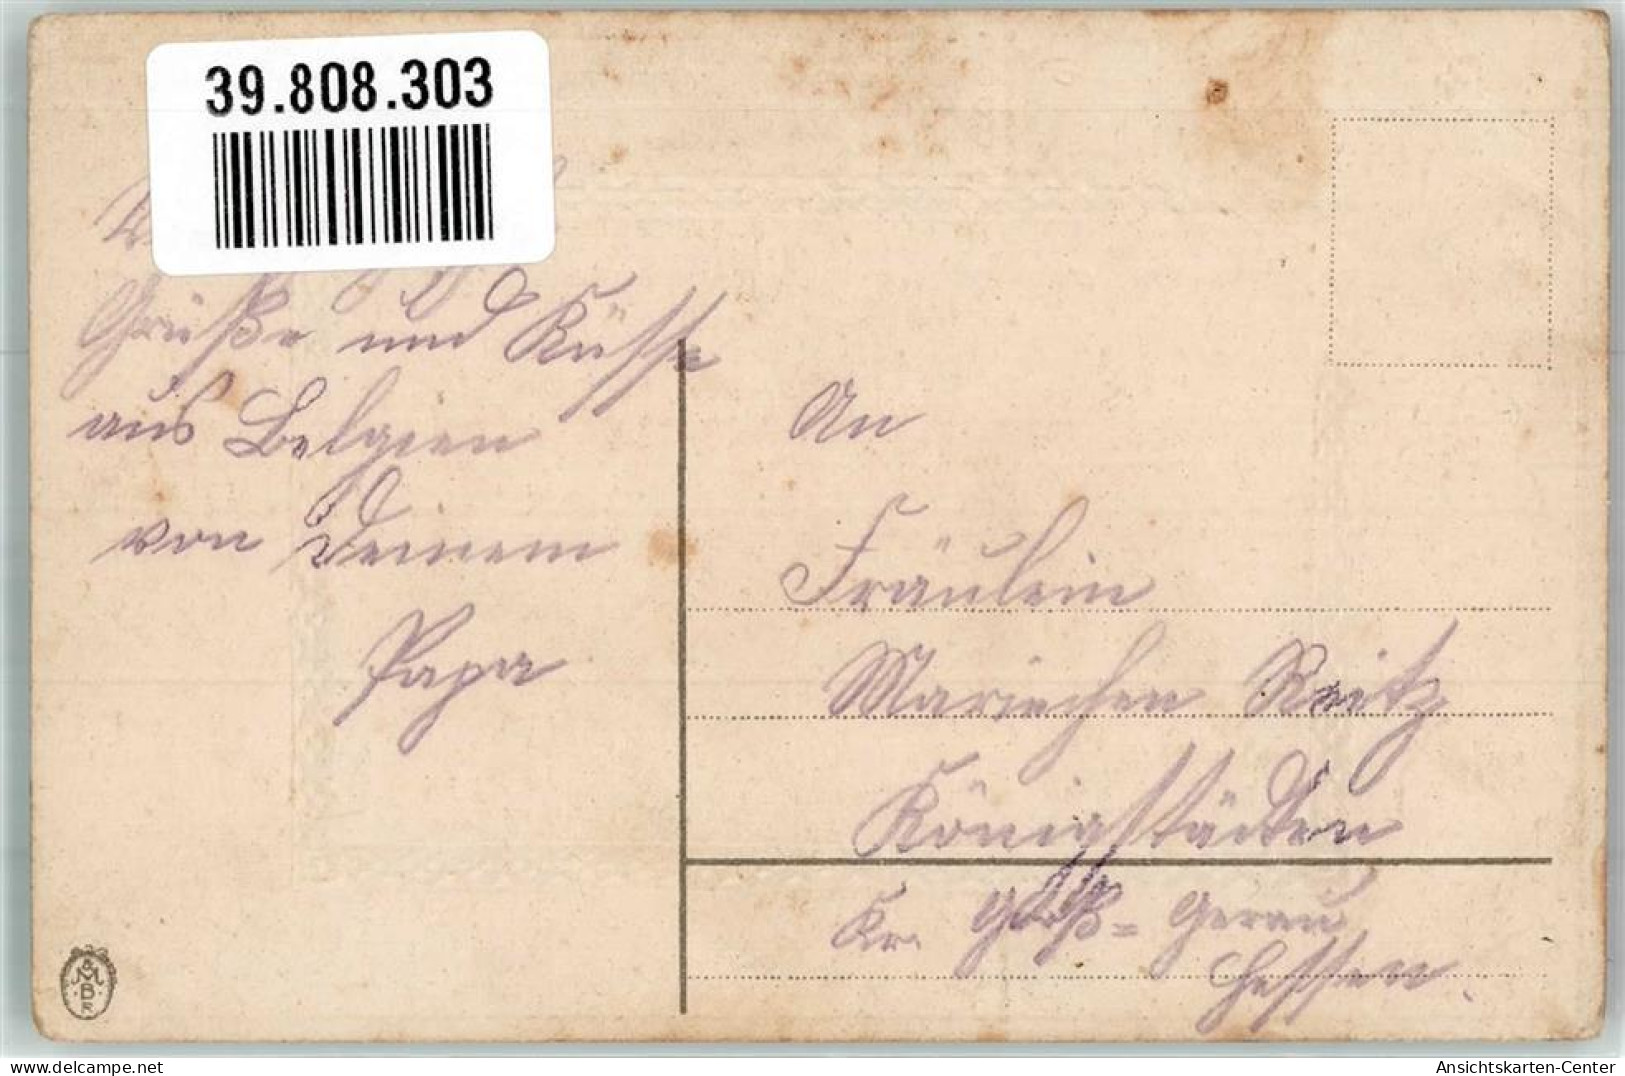 39.808.303
Grüße und Küsse
aus Belgien
von Deinem
Papa
An
Fräulein
Mariechen Reitz
Königstädten
Kr. Groß=Gerau
Hessen.
M
B
delcampe.net
Ansichtskarten-Center